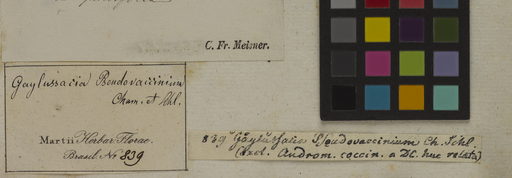 C. Fr. Meisner.
Gaylussacia Pseudovaccinium
Cham. et Schl.
Martii Herbar. Florae
Brasil. No 839
839 Gaylussacia Pseudovaccinium Ch. Schl.
(excl. Androm. coccin. a DC. huc relata)